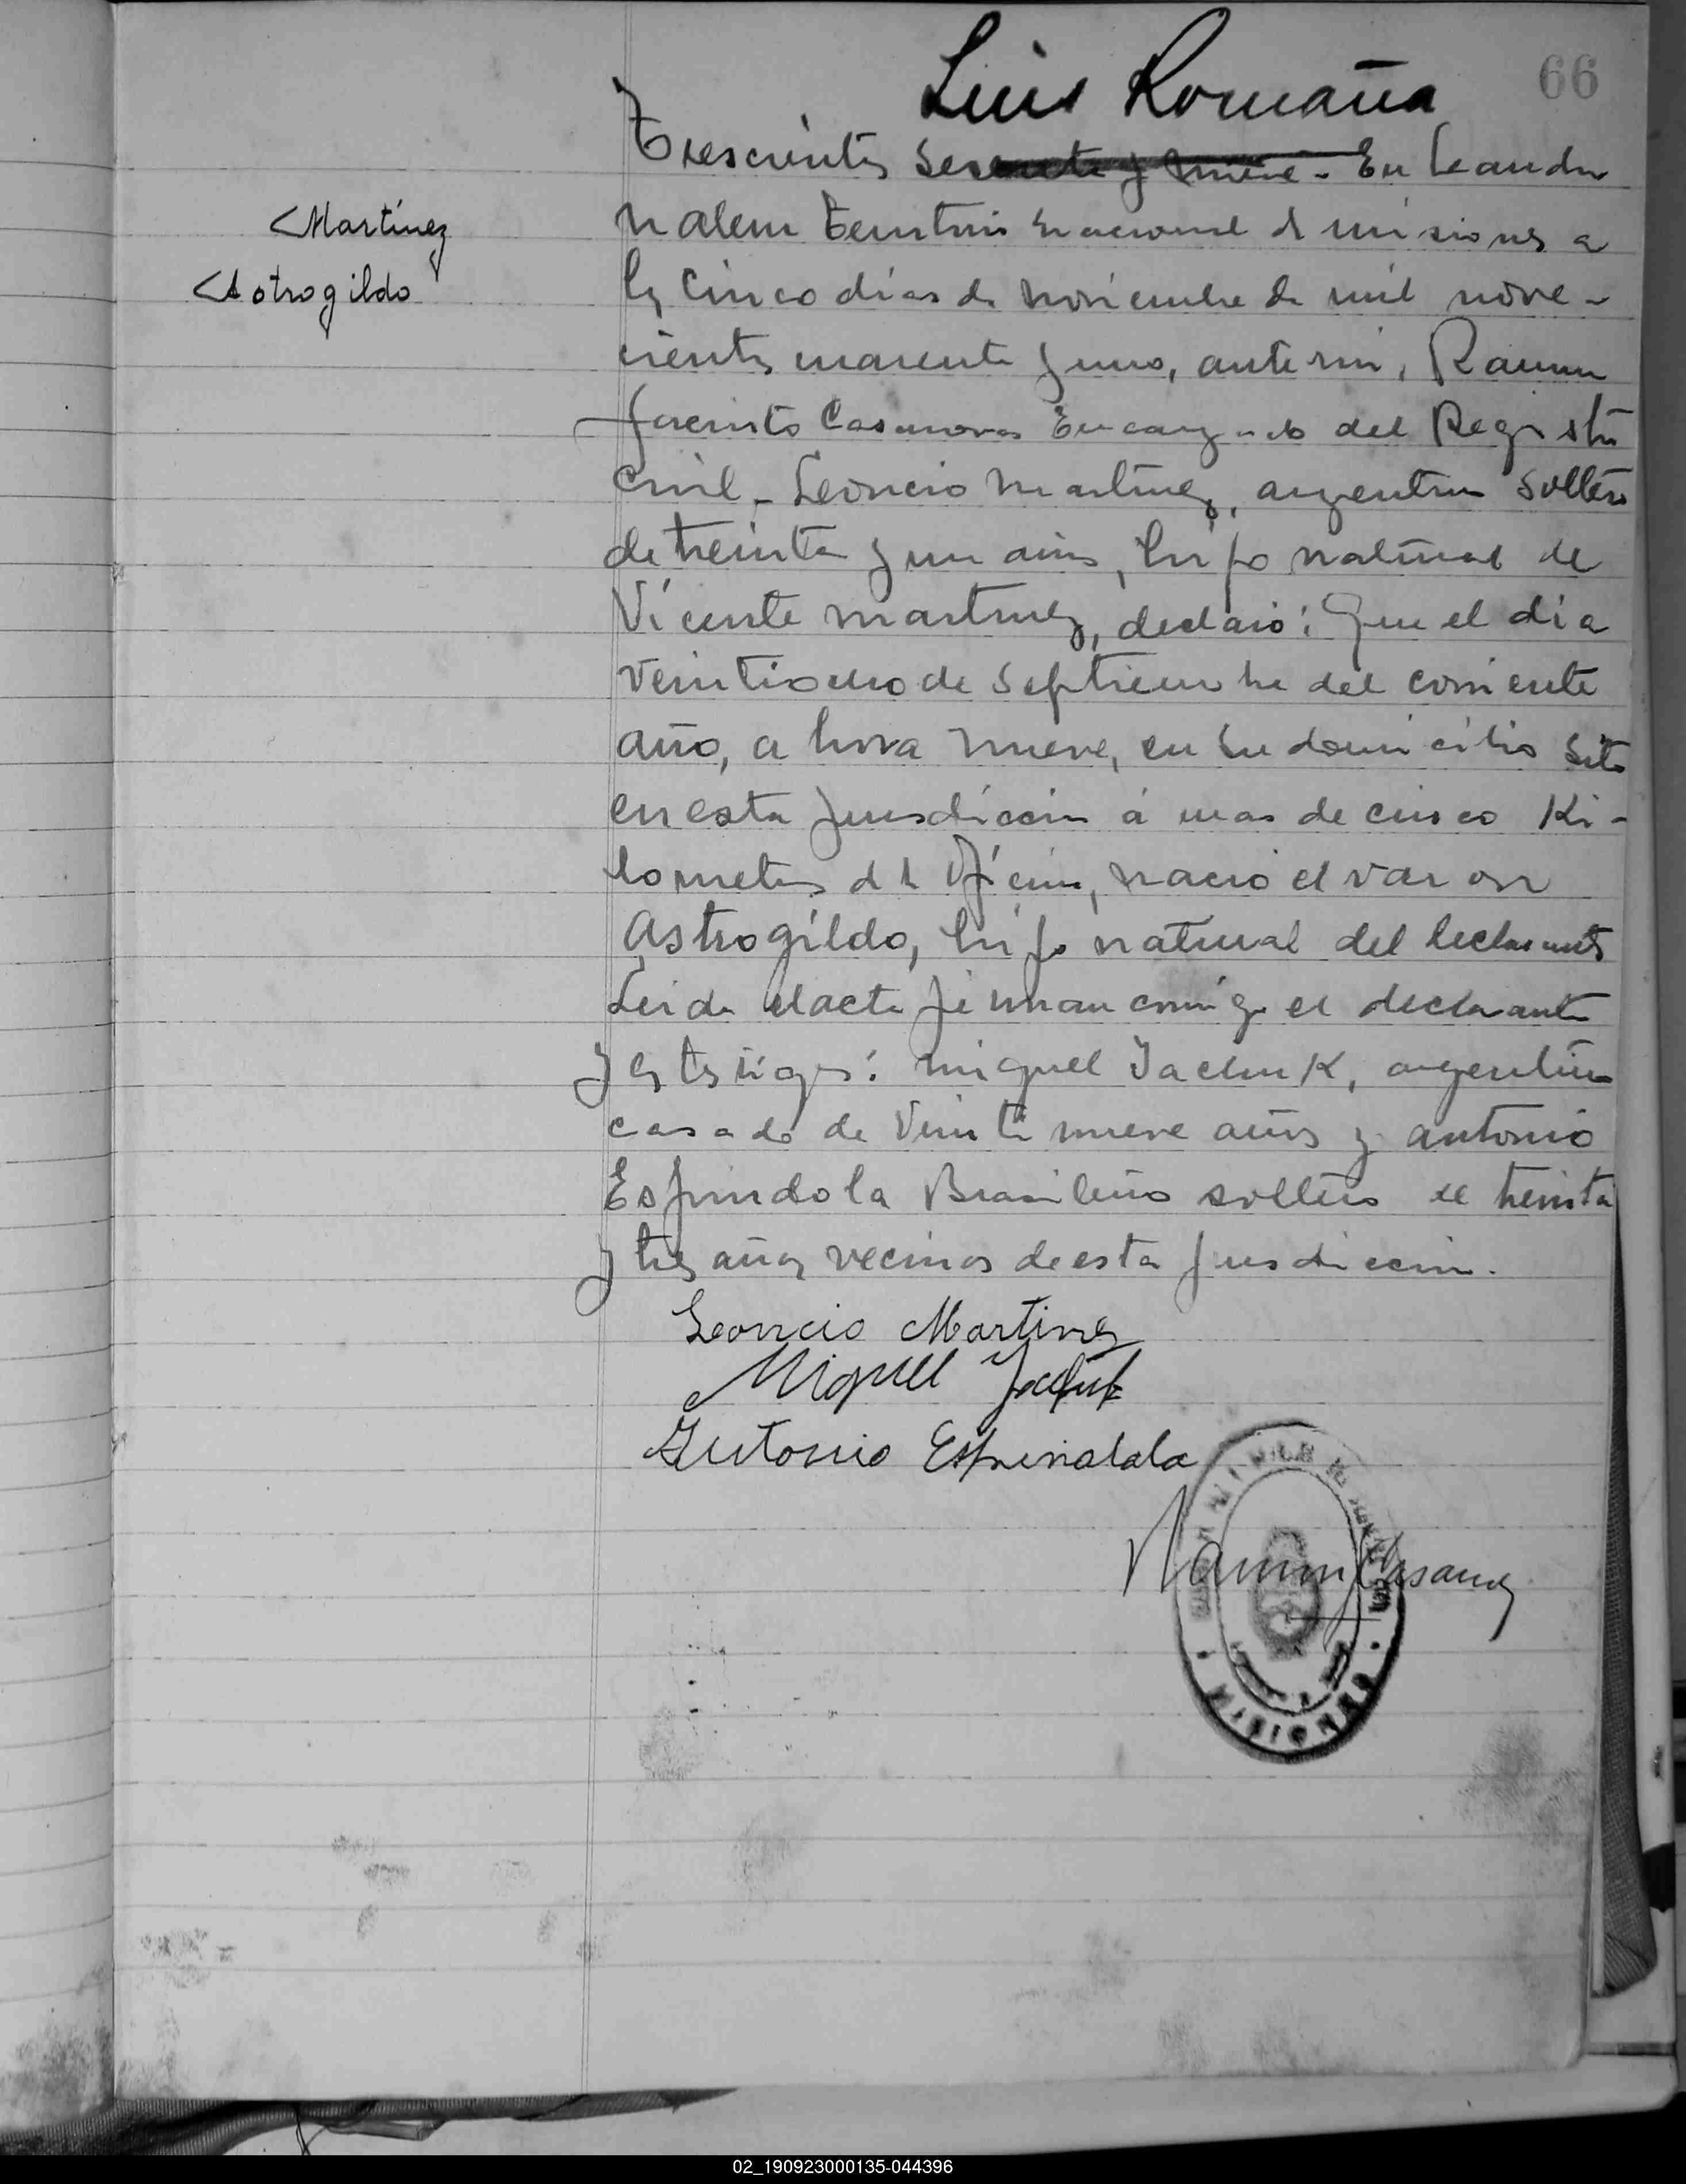 Luis Romaña
66
Trescientos sesenta y nueve - En Leandro
Martínez
N Alem Territorio Nacional de Misiones a
Astrogildo
los cinco dias de noviembre de mil nove-
cientos cuarenta y uno, ante mi, Ramon
Jacinto Casanova Encargado del Registro
Civil - Leoncio Martinez, argentino soltero
de treinta y un años, hijo natural de
Vicente Martinez, declaró: Que el día
veintiocho de Septiembre del corriente
año, a hora nueve, en su domicilio sito
en esta jurisdiccion á mas de cinco Ki-
lometros de la Oficina, nació el varon
Astrogildo, hijo natural del declarante
Leida el acta firman conmigo el declarante
y los testigos: Miguel Iachuk, argentino
casado de veintinueve años y Antonio
Espindola Brasileño soltero de treinta
y tres años vecinos de esta jurisdiccion.
Leoncio Martinez
Miguel
Antonio Espinalala
Ramon J Casanova
MISIONES
02_190923000135-044396